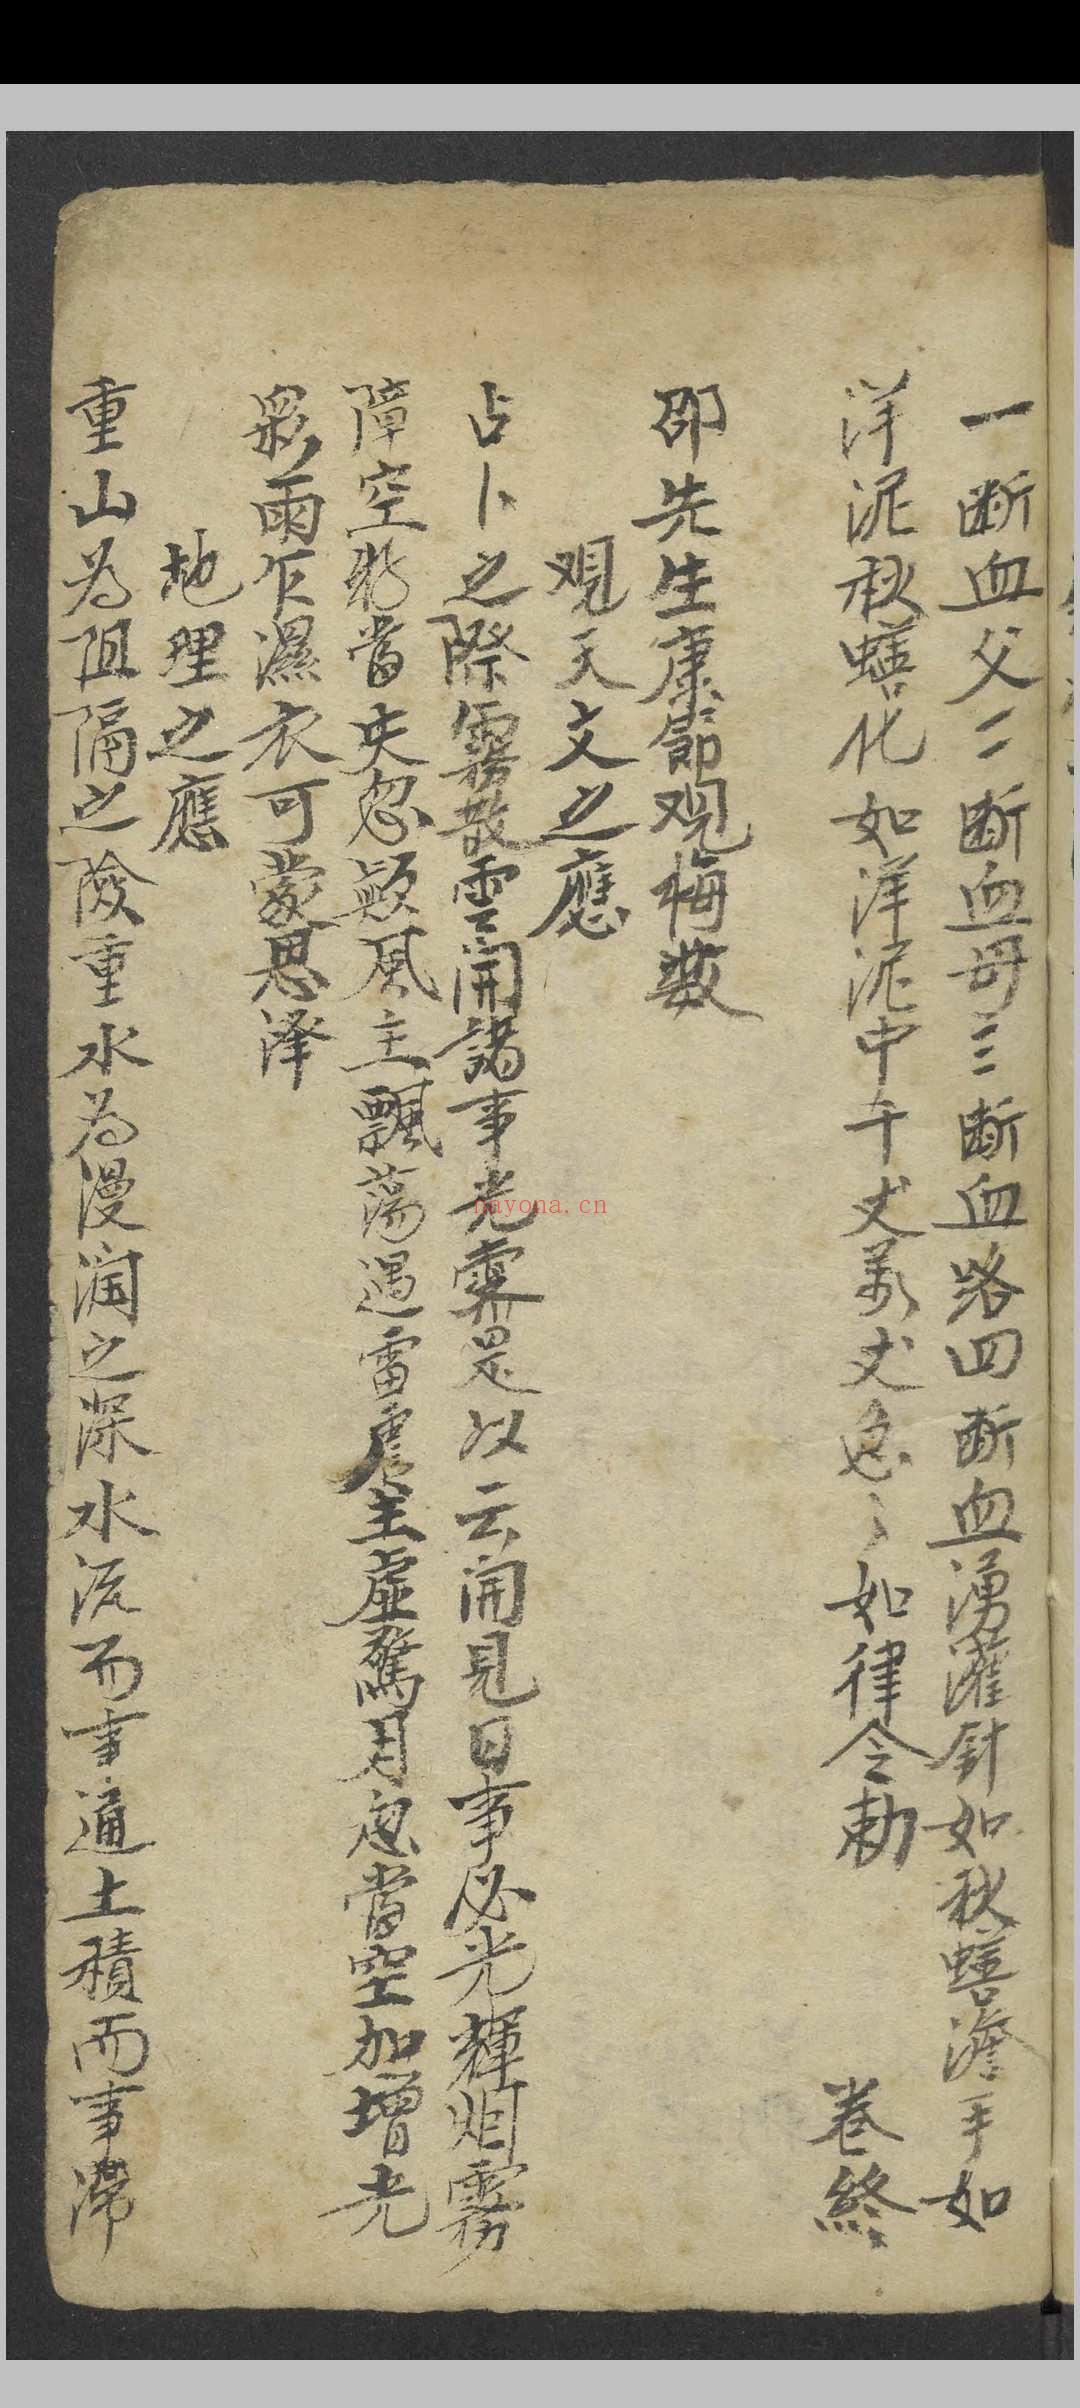 一断血父二断血母三断血路四断血湧灌针如秋蟮澹手如
洋泥秋蟮化如洋泥中千丈萬丈急々如律令勅 卷終
邵先生康節观梅数
观天文之應
占卜之際霧散雲開諸事光霽是以云開見日事必光輝烟霧
障空物當失忽颠風主飄蕩遇雷震主虛驚月忽當空加增光
彩雨乍濕衣可蒙恩泽
地理之應
重山為阻隔之險重水為漫润之深水流而事通土積而事滯
nayona.cn